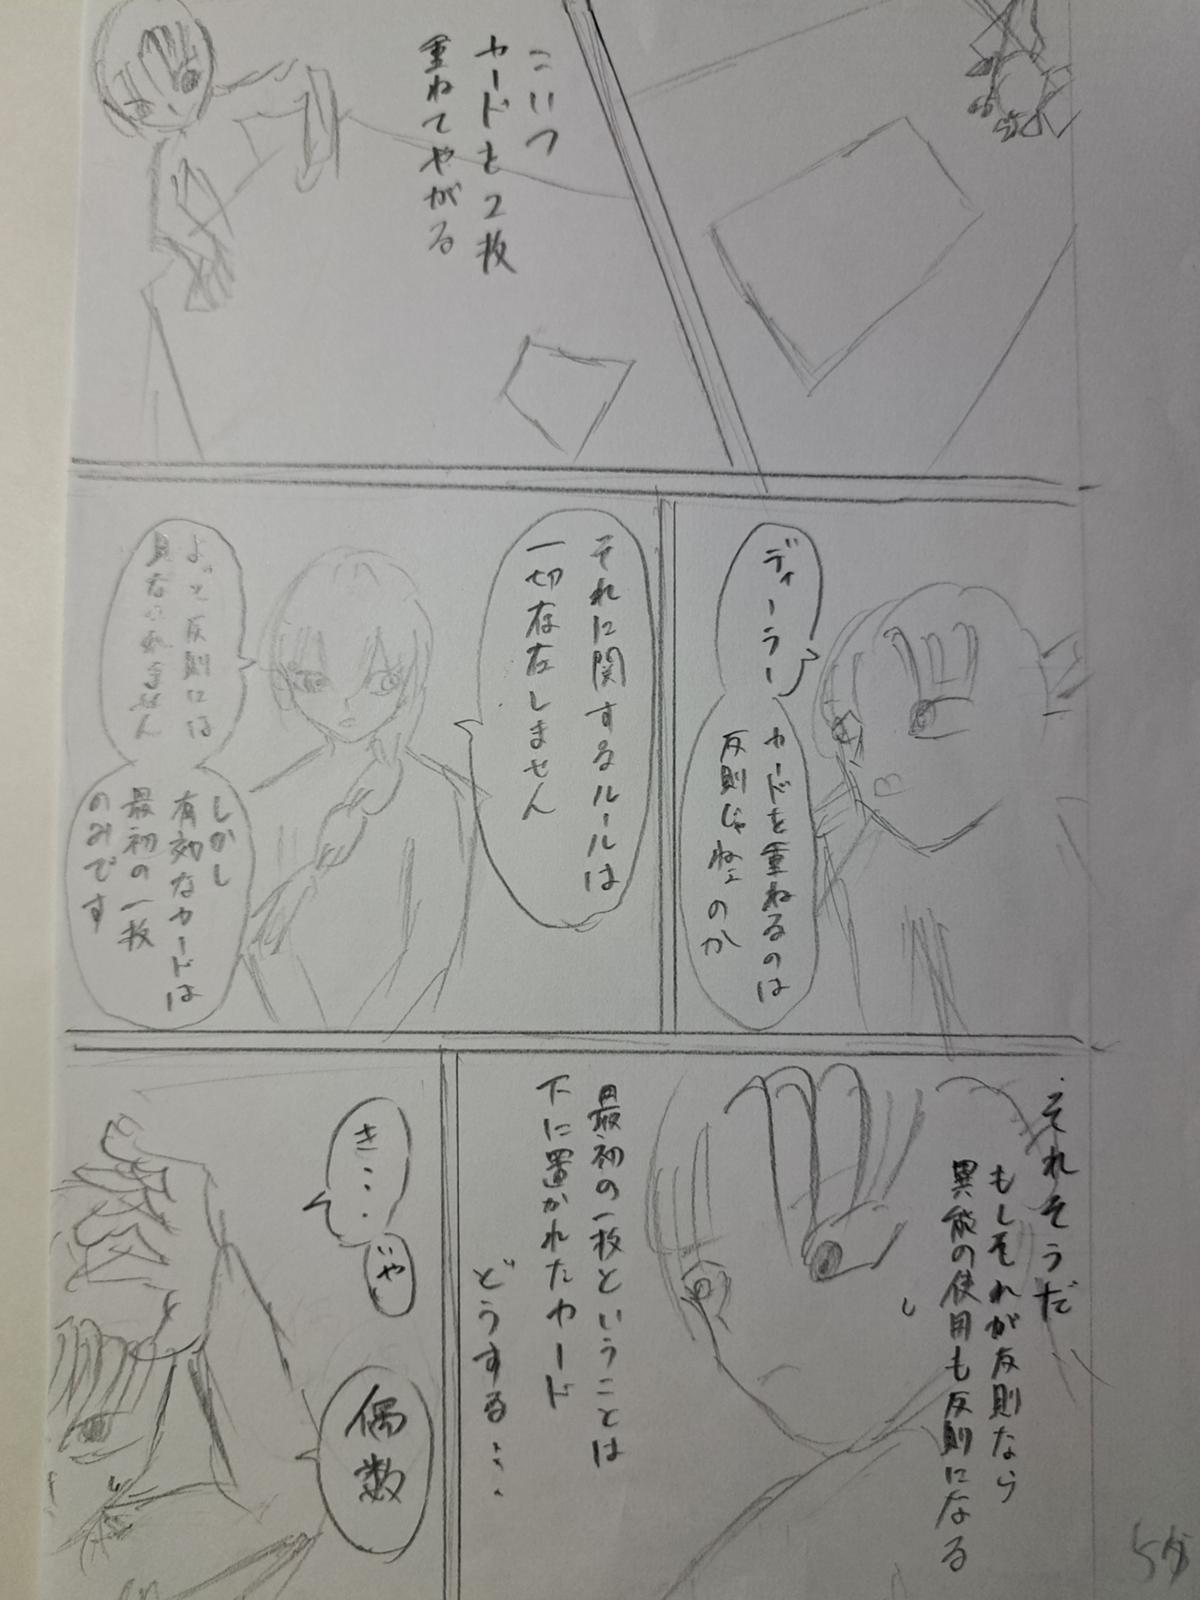 こいつ
カードも2枚
重ねてやがる
ディーラー
カードを重ねるのは
反則じゃねェのか
それに関するルールは
一切存在しません
よって反則には
見なされません
しかし
有効なカードは
最初の一枚
のみです
それそうだ
もしそれが反則なら
異能の使用も反則になる
最初の一枚ということは
下に置かれたカード
どうする・・・
き・・・
いや
偶数